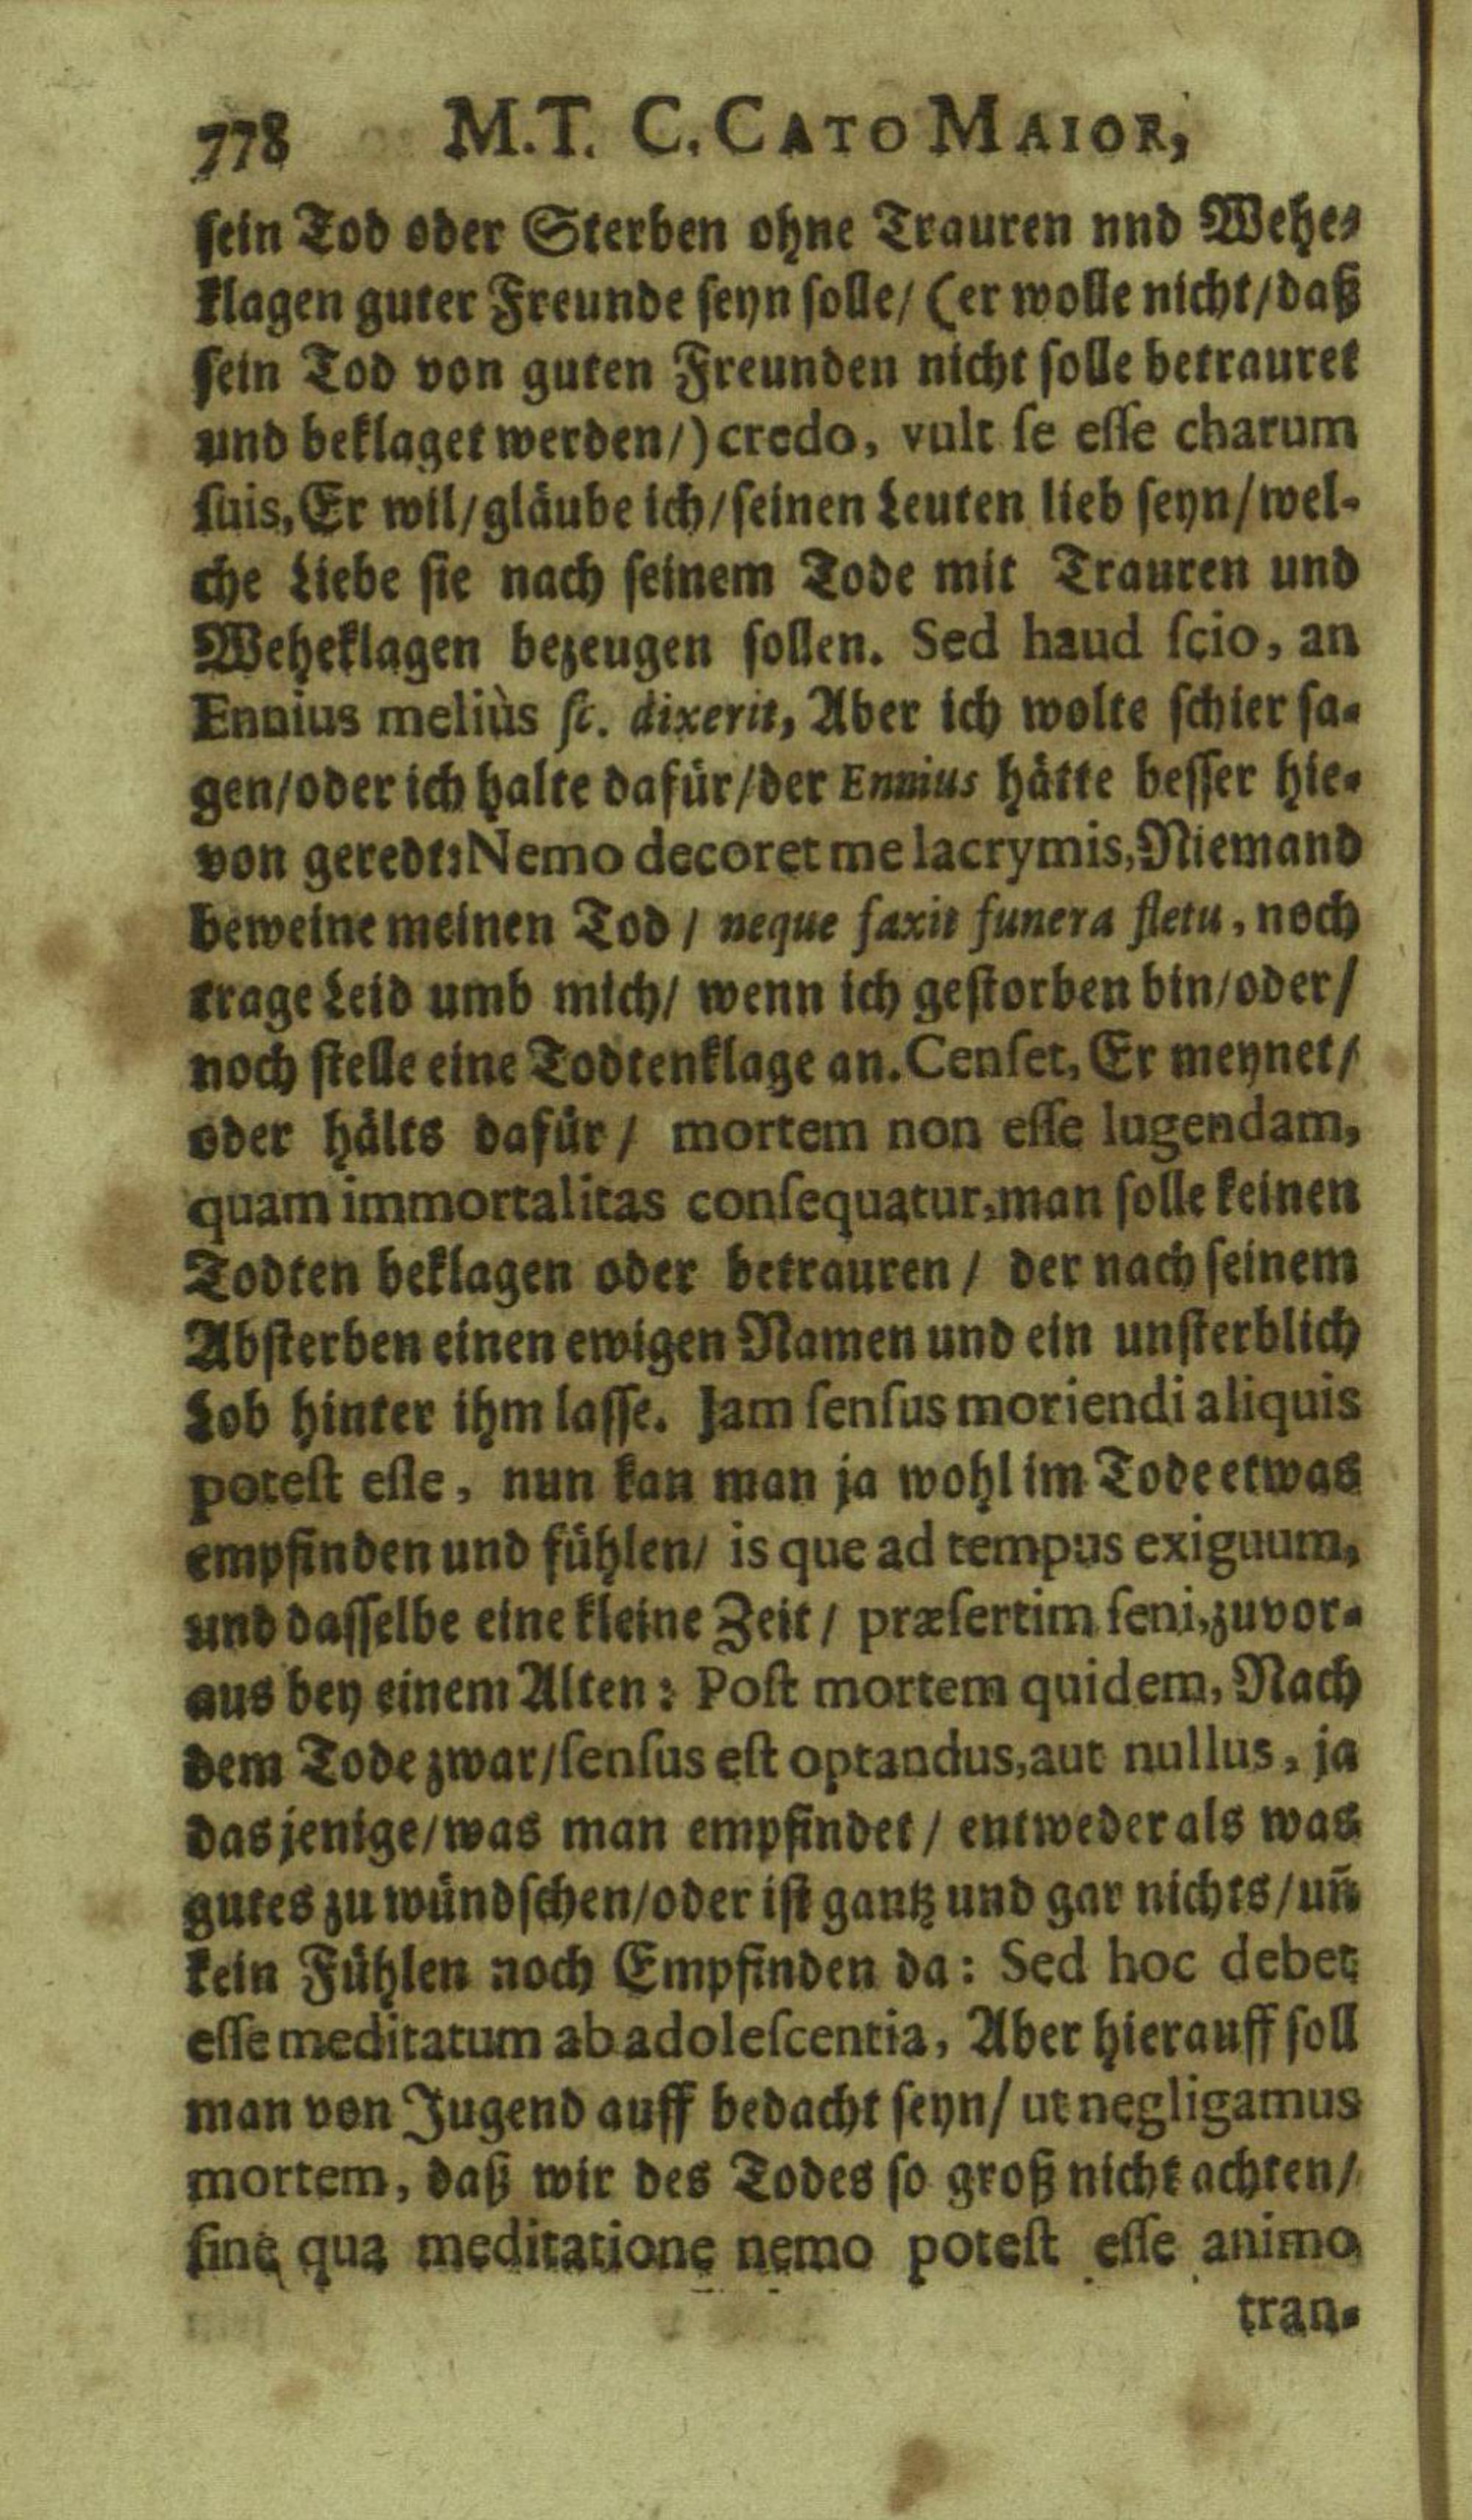 778 M.T. C. CATO MAIOR,
sein Tod oder Sterben ohne Trauren nnd Wehe-
klagen guter Freunde seyn solle/ (er wolle nicht/daß
sein Tod von guten Freunden nicht solle betrauret
und beklaget werden/) credo, vult ſe eſſe charum
ſuis, Er wil/gläube ich/seinen Leuten lieb seyn/wel-
che Liebe sie nach seinem Tode mit Trauren und
Weheklagen bezeugen sollen. Sed haud ſcio, an
Ennius meliùs ſc. dixerit, Aber ich wolte schier sa-
gen/oder ich halte dafür/der Ennius hätte besser hie-
von geredt: Nemo decoret me lacrymis, Niemand
beweine meinen Tod / neque faxit funera fletu, noch
trage Leid umb mich/ wenn ich gestorben bin/oder/
noch stelle eine Todtenklage an. Cenſet, Er meynet/
oder hälts dafür / mortem non eſſe lugendam,
quam immortalitas conſequatur, man solle keinen
Todten beklagen oder betrauren / der nach seinem
Absterben einen ewigen Namen und ein unsterblich
Lob hinter ihm lasse. Jam ſenſus moriendi aliquis
poteſt eſſe, nun kan man ja wohl im Tode etwas
empfinden und fühlen/ is que ad tempus exiguum,
und dasselbe eine kleine Zeit / præſertim ſeni, zuvor-
aus bey einem Alten: Poſt mortem quidem, Nach
dem Tode zwar/ſenſus eſt optandus, aut nullus, ja
dasjenige/was man empfindet / entweder als was
gutes zu wündschen/oder ist gantz und gar nichts/uñ
kein Fühlen noch Empfinden da: Sed hoc debet
eſſe meditatum ab adoleſcentia, Aber hierauff soll
man von Jugend auff bedacht seyn/ ut negligamus
mortem, daß wir des Todes so groß nicht achten/
ſine qua meditatione nemo poteſt eſſe animo
tran-